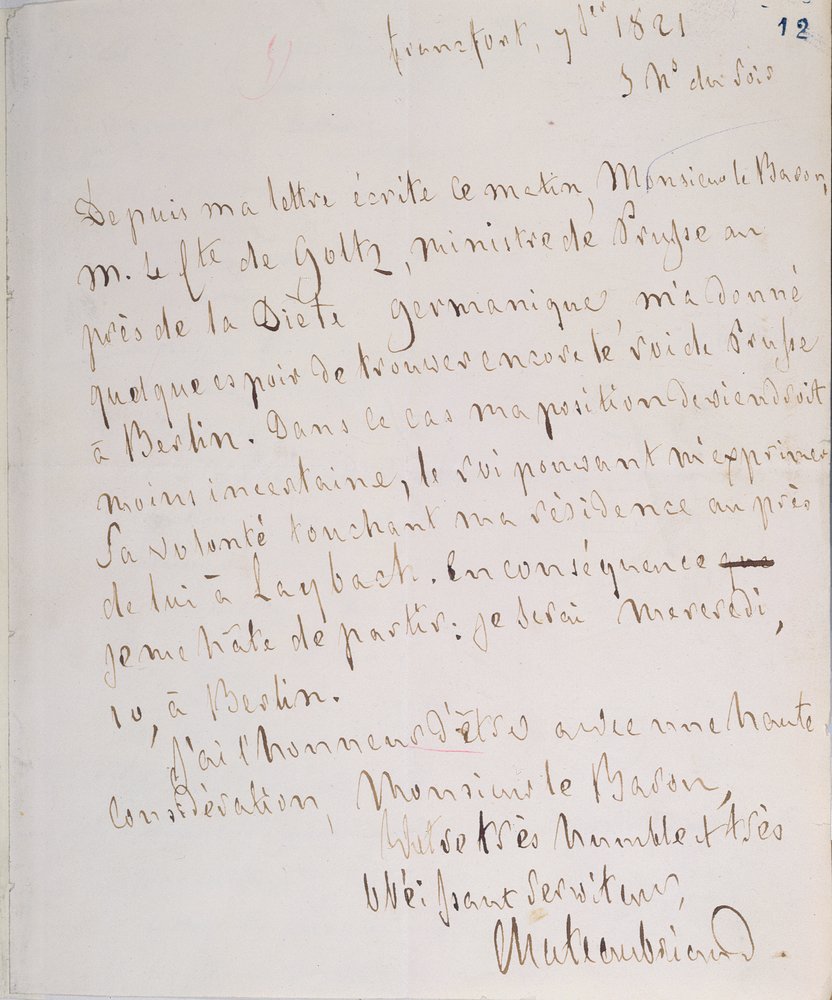 12
francfort, 7 Jer 1821
5 hs du Soir
Depuis ma lettre écrite ce matin, Monsieur le Baron,
M. le Cte de Goltz, ministre de Prusse au
près de la Diète germanique, m'a donné
quelque espoir de trouver encore le roi de Prusse
à Berlin. Dans ce cas ma position deviendroit
moins incertaine, le roi pouvant m'exprimer
sa volonté touchant ma résidence au près
de lui à Laybach. En conséquence que
je me hâte de partir: je serai Mercredi,
10, à Berlin.
J'ai l'honneur d'être avec une haute
considération, Monsieur le Baron,
Votre très humble et très
obéissant serviteur,
Chateaubriand.